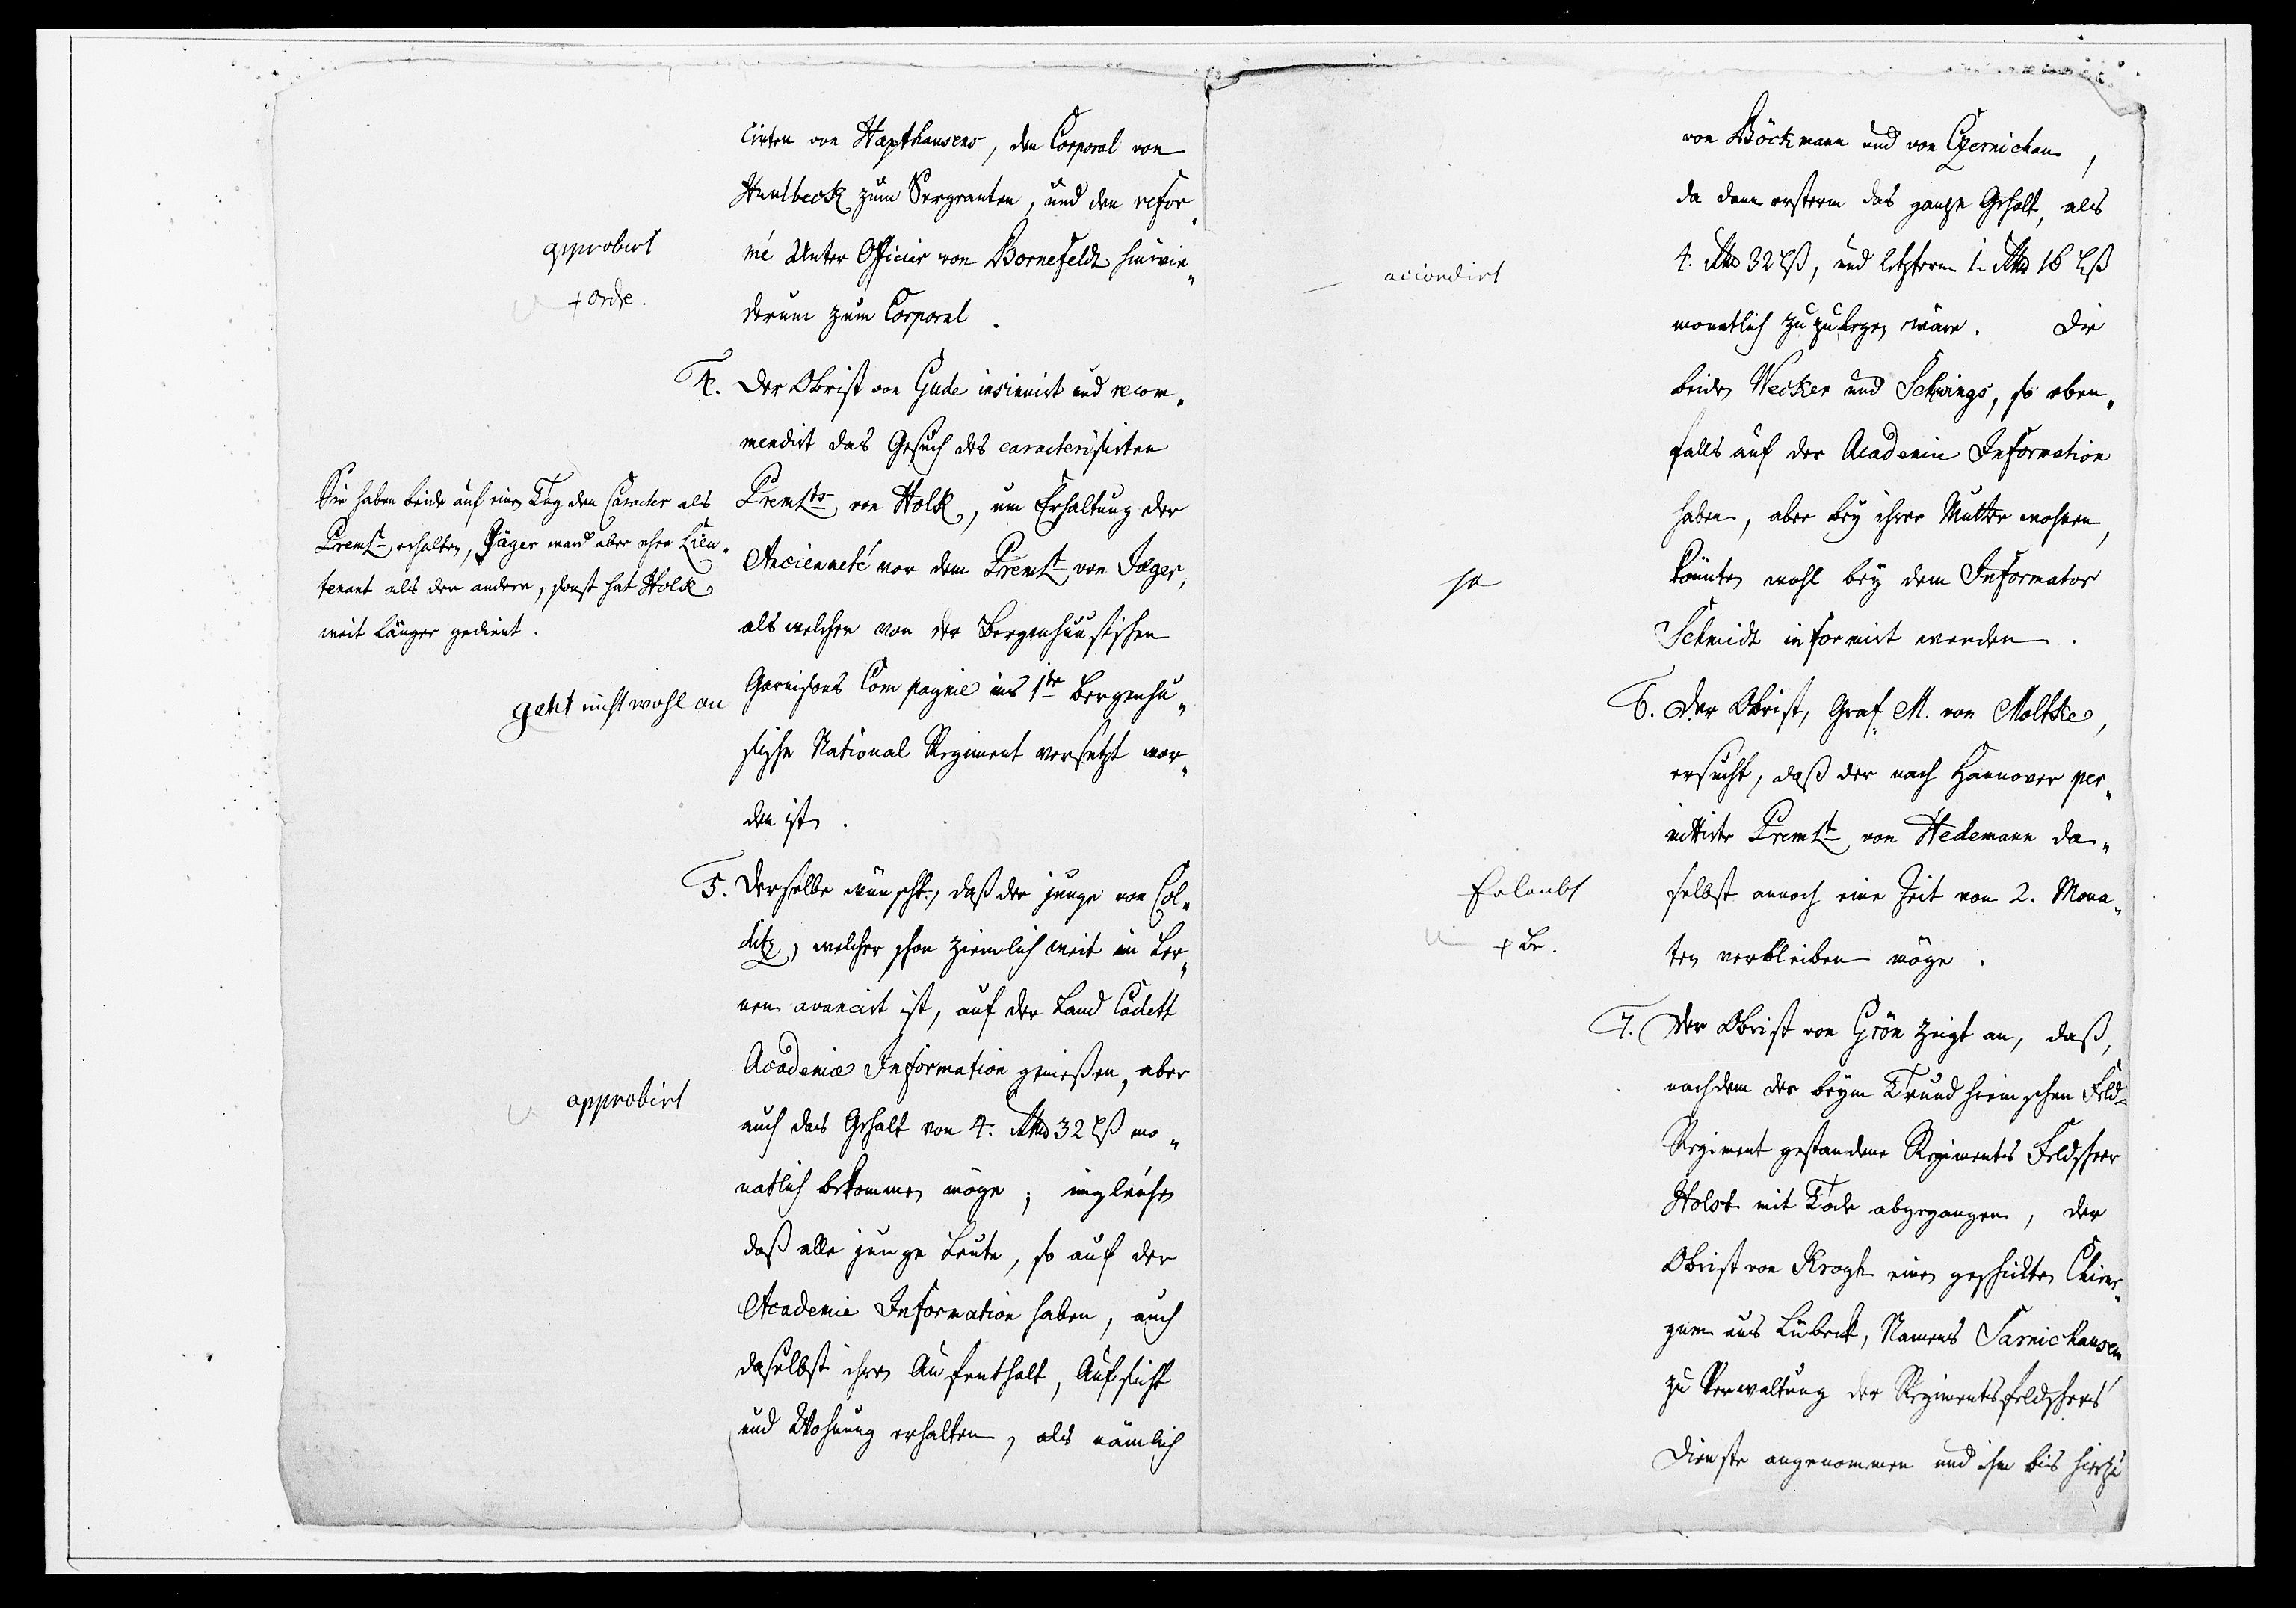 cirten von Haxthausens, den Corporal von
Huulbeck zum Sergeanten, und den refor„
mé Unter Officier von Bornefeldt hinwie„
derum zum Corporal.
approbirt
+ Orde.
4. Der Obrist von Gude insinuirt und recom„
mendirt das Gesuch des caracterisirten
PremLts von Holk, um Erhaltung der
Ancienneté vor dem PremLt von Jæger,
als welcher von der Bergenhuusischen
Garnisons Compagnie ins 1ste Bergenhu„
sische National Regiment versetzt wor„
den ist.
Sie haben beide auf einen Tag den Caracter als
PremLt erhalten, Jäger ward aber eher Lieu„
tenant als der andere, sonst hat Holk
weit länger gedient.
geht nicht wohl an
5. Derselbe wünscht, daß der junge von Col„
ditz, welcher schon ziemlich weit im Ler„
nen avancirt ist, auf der Land Cadett
Academie Information genießen, aber
auch das Gehalt von 4. Rthlr 32 lß mo„
natlich bekommen möge; imgleichen
daß alle junge Leute, so auf der
Academie Information haben, auch
daselbst ihren Aufenthalt, Aufsicht
und Wohnung erhalten, als nämlich
approbirt
von Böckmann und von Czernichau,
da dann ersterm das ganze Gehalt, als
4. Rthlr 32 lß, und letzterm 1. Rthlr 16 lß
monatlich zuzulegen wäre. Die
beiden Wecker und Schwings, so eben„
falls auf der Academie Information
haben, aber bey ihrer Mutter wohnen,
könnten wohl bey dem Informator
Schmidt informirt werden.
accordirt
ja
6. Der Obrist, Graf M. von Moltke,
ersucht, daß der nach Hannover per„
mittirte PremLt von Hedemann da„
selbst annoch eine Zeit von 2. Mona„
ten verbleiben möge.
Erlaubt
+ Br.
7. Der Obrist von Grön zeigt an, daß,
nachdem der beym Trundheimschen Feld-
Regiment gestandene Regiments Feldscheer
Holst mit Tode abgegangen, der
Obrist von Krogh einen geschickten Chirur„
gum aus Lübeck, Namens Sarnichausen
zu Verwaltung der Regimentsfeldscheers
Dienste angenommen und ihn bis hiezu